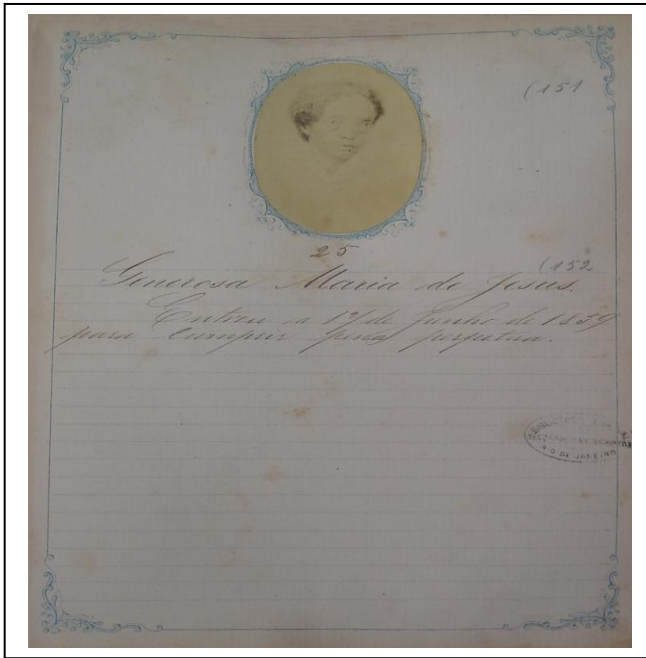 (151
25
(152
Generosa Maria de Jesus.
Entrou a 17 de Junho de 1859
para cumprir pena perpetua.
RIO DE JANEIRO